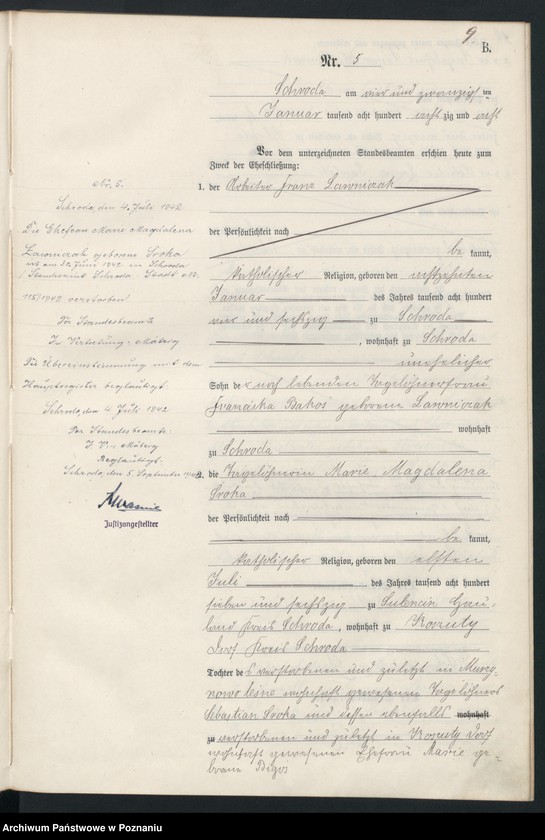 9
B.
Nr. 5
Schroda am vier und zwanzigsten
Januar tausend acht hundert achtzig und acht
Vor dem unterzeichneten Standesbeamten erschien heute zum
Zweck der Eheschließung:
1. der Arbeiter Franz Lawniczak
der Persönlichkeit nach
be kannt,
katholischer Religion, geboren den achtzehnten
Januar des Jahres tausend acht hundert
vier und sechszig zu Schroda
, wohnhaft zu Schroda
unehelicher
Sohn der noch lebenden Tagelöhnerfrau
Franciska Bakoś geborene Lawniczak
wohnhaft
zu Schroda
2. die Tagelöhnerin Marie Magdalena
Sroka
der Persönlichkeit nach
be kannt,
katholischer Religion, geboren den elften
Juli des Jahres tausend acht hundert
sieben und sechszig zu Sulencin Hau-
land Kreis Schroda, wohnhaft zu
Dorf Kreis Schroda
Tochter des verstorbenen und zuletzt in Murzy-
nowo leśne wohnhaft gewesenen Tagelöhners
Sebastian Sroka und dessen ebenfalls wohnhaft
zu verstorbenen und zuletzt in Dorf
wohnhaft gewesenen Ehefrau Marie ge-
borene Bigos
Nr. 5.
Schroda, den 4. Juli 1942
Die Ehefrau Marie Magdalena
Lawniczak geborene Sroka
ist am Juni 1942 in Schroda
(Standesamt Schroda Stadt Nr.
115/1942 verstorben
Der Standesbeamte
In Vertretung:
Die Übereinstimmung mit dem
Hauptregister beglaubigt.
Schroda, den 4. Juli 1942
Der Standesbeamte:
I. V.:
Beglaubigt.
Schroda, den 5. September 1942
Justizangestellter
Archiwum Państwowe w Poznaniu